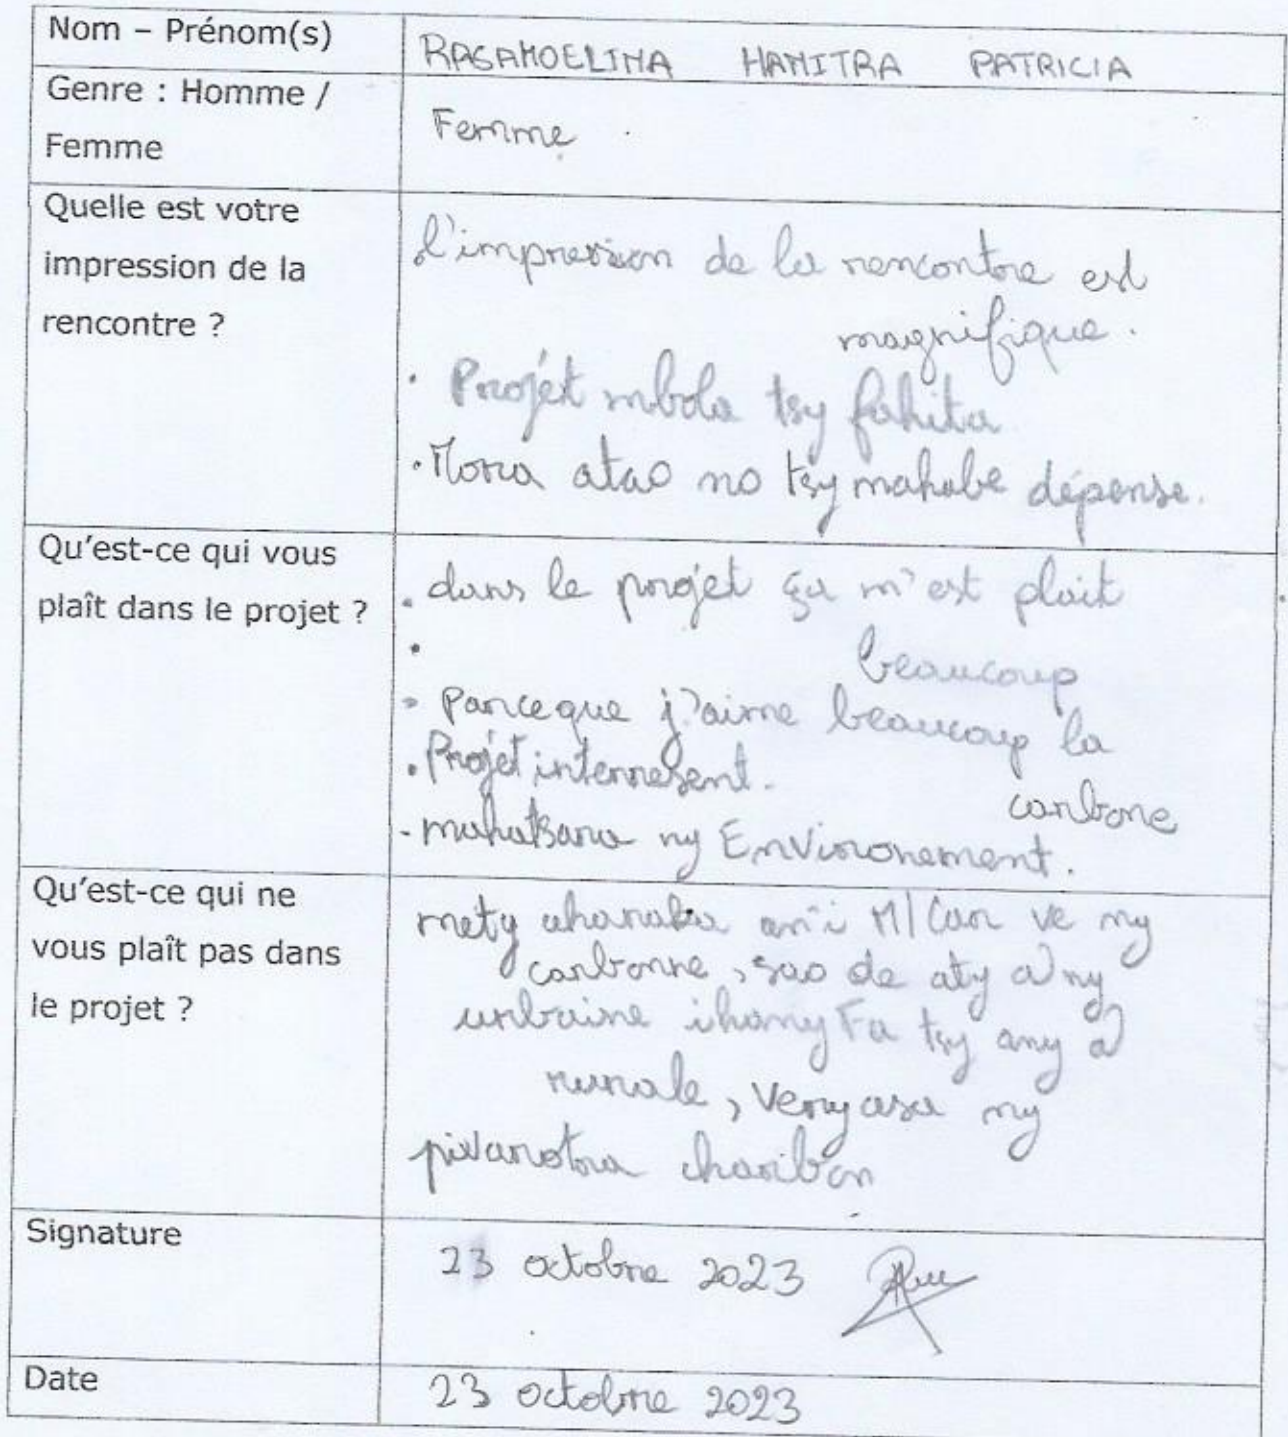 Nom – Prénom(s)
RASAMOELINA HANITRA PATRICIA
Genre : Homme /
Femme
Femme
Quelle est votre
impression de la
rencontre ?
l'impression de la rencontre est
magnifique.
. Projet mbola tsy fahita
. Mora atao no tsy mahabe dépense.
Qu'est-ce qui vous
plaît dans le projet ?
. dans le projet ça m'est plait
beaucoup
- Parceque j'aime beaucoup la
carbone
. Projet interresent.
- mahatsara ny Environement.
Qu'est-ce qui ne
vous plaît pas dans
le projet ?
mety ahanaka an'i M/Car ve ny
carbonne, sao de aty a) ny
urbaine ihany Fa tsy any a)
rurale, Very asa ny
mpivarotra charibon
Signature
23 octobre 2023
Date
23 octobre 2023